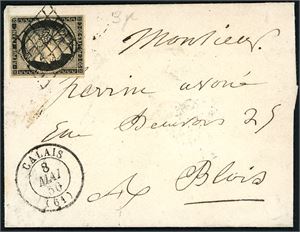 3r
Monsieur
perrin avoué
Rue Beauvois 25
Blois
CALAIS
8
MAI
50
(61)